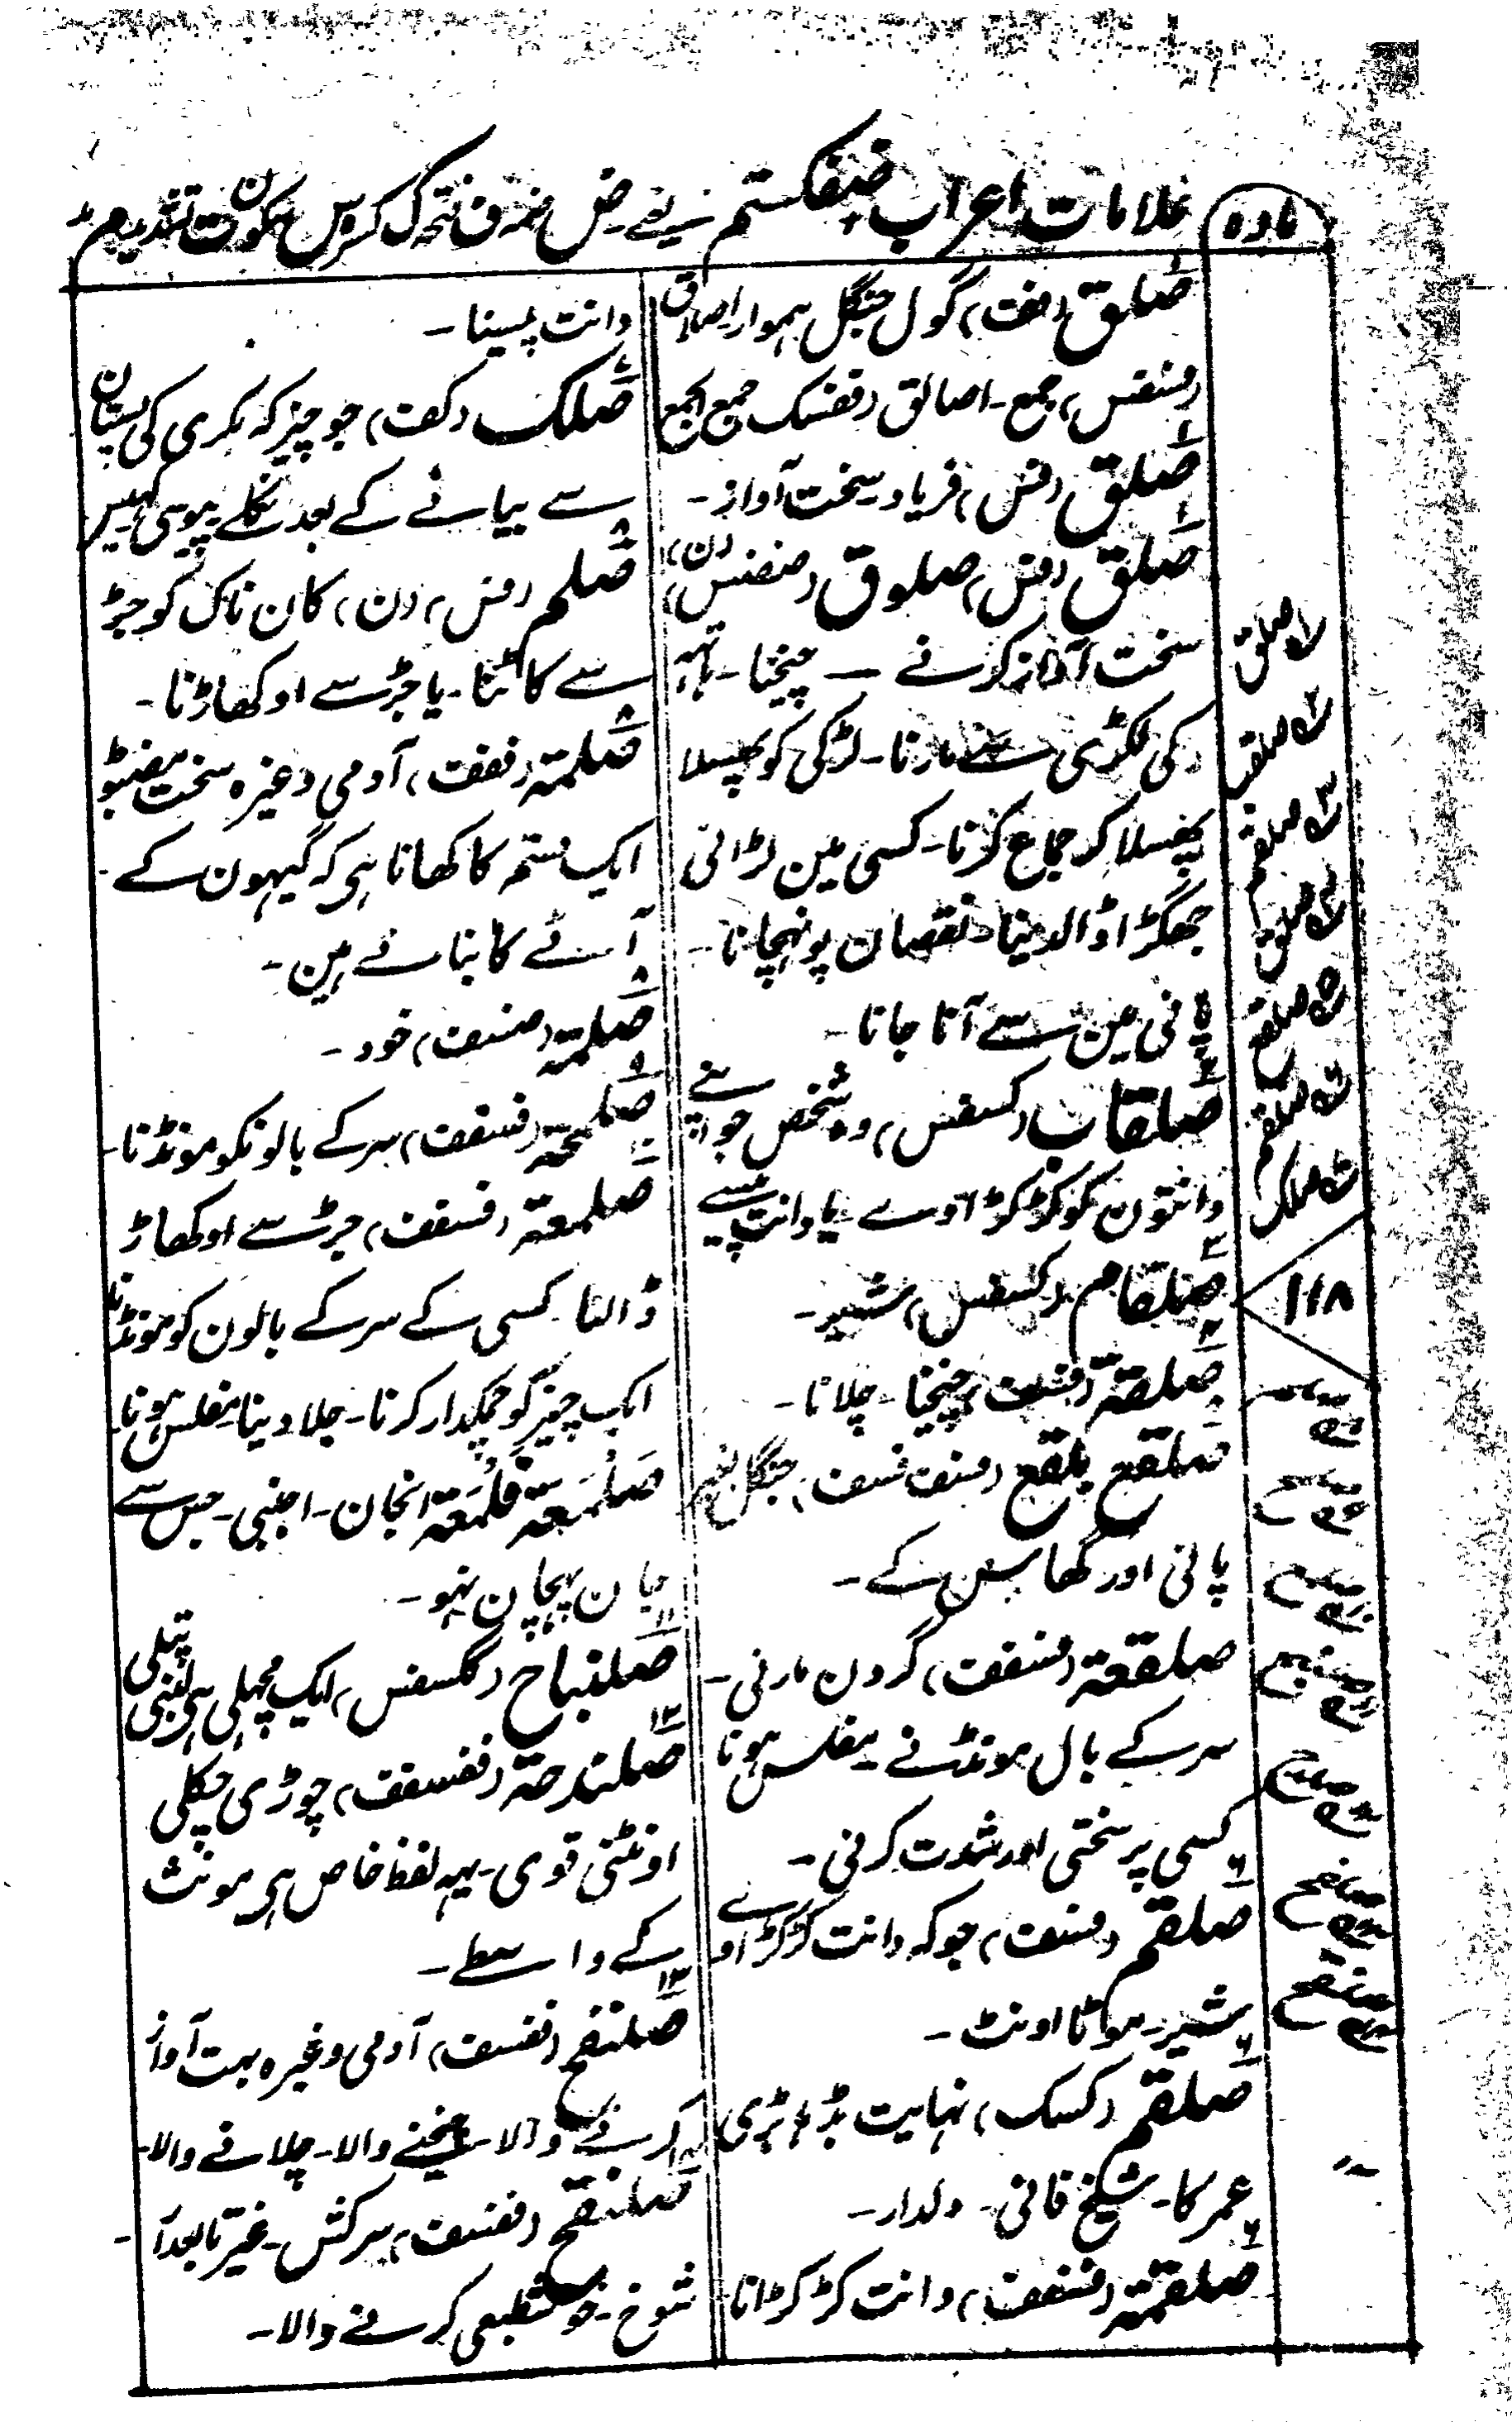 مادہ
علامات اعراب ضفکستم یعنے ض ضمہ ف فتحہ ک کسرہ س سکون ت تشدید م مد
صلق (فت) گول جنگل ہموار اصلاق
(فسفس) جمع۔ اصالق (ففسک) جمع الجمع
صلق (فس) فریاد سخت آواز۔
صلق (فس) صلوق (ضضفس) (ن)
سخت آواز کرنے۔ چیخنا۔
کی لکڑی سے مارنا۔ لڑکی کو پھسلا
پھسلا کر جماع کرنا۔ کسی مین لڑائی
جھگڑا ڈالدینا۔ نقصان پونہچانا۔
پانی مین سے آنا جانا۔
صلقاب (کسفس) وہ شخص جو اپنے
دانتون کو کڑکڑاوے یا دانت پیسے
صلقام (کسفس) شیر۔
صلقۃ (فسفت) چیخنا۔ چلانا۔
صلقع بلقع (فسف فسف) جنگل بغیر
پانی اور گھاس کے۔
صلقعۃ (فسففت) گردن مارنی۔
سر کے بال مونڈنے۔ مفلس ہونا
کسی پر سختی اور شدت کرنی۔
صلقم (فسف) جو کہ دانت کڑکڑاوے
شیر۔ موٹا اونٹ۔
صلقم (کسک) نہایت بڈھا بڑی
عمر کا۔ شیخ فانی۔ دلدار۔
صلقمۃ (فسففت) دانت کڑکڑانا۔
دانت پیسنا۔
صلک (کفت) جو چیز کہ بکری کی پستان
سے بیانے کے بعد نکلے پیوسی کھیس
صلم (فس) (ن) کان ناک کو جڑ
سے کاٹنا۔ یا جڑ سے اوکھاڑنا۔
صلمۃ (ففت) آدمی وغیرہ سخت مضبو
ایک قسم کا کھانا ہی کہ گیہون کے۔
آٹے کا بناتے ہین۔
صلمۃ (ضسف) خود۔
صلمحۃ (فسففت) سر کے بالونکو مونڈنا۔
صلمعۃ (فسففت) جڑ سے اوکھاڑ
ڈالنا۔ کسی کے سر کے بالون کو مونڈنا
ایک چیز کو چمکدار کرنا۔ جلا دینا مفلس ہونا۔
صلمعۃ قلمعۃ انجان۔ اجنبی۔ جس سے
جان پہچان نہو۔
صلنباح (ککسفس) ایک مچھلی ہی لنبی پتلی
صلندحۃ (ففسففت) چوڑی چکلی
اونٹنی قوی۔ یہہ لفظ خاص ہی مونث
کے واسطے۔
صلنفح (ففسف) آدمی وغیرہ بہت آواز
کرنے والا۔ چیخنے والا۔ چلانے والا۔
صلنقح (ففسف) سرکش۔ غیر تابعدا۔
شوخ۔ خوشطبعی کرنے والا۔
صلق
صلقب
صلقم
صلق
صلقع
صلقم
صلک
۱۱۸